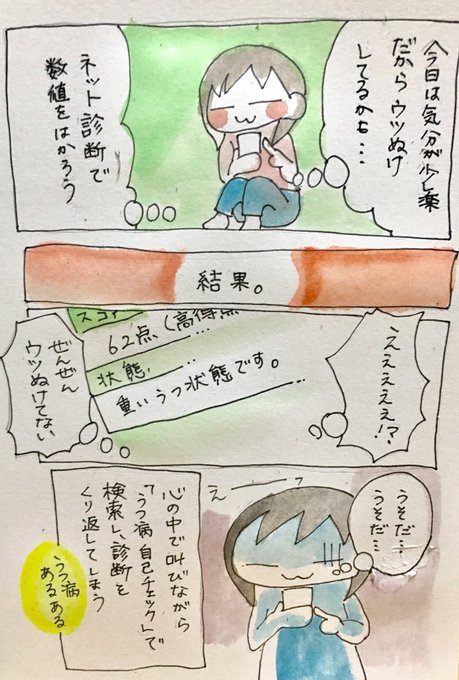 今日は気分が少し楽
だからウツぬけ
してるかも…
ネット診断で
数値をはかろう
結果。
スコア
62点(高得点
状態
重いうつ状態です。
ええええぇ!?
ぜんぜん
ウツぬけてない
うそだ…
うそだ…
えーーッ
心の中で叫びながら
「うつ病自己チェック」で
検索し、診断を
くり返してしまう
うつ病
あるある